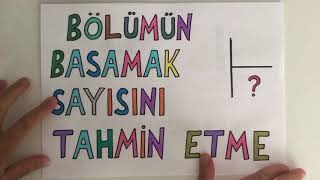 BÖLÜMÜN
BASAMAK
SAYISINI
?
TAHMİN ETME